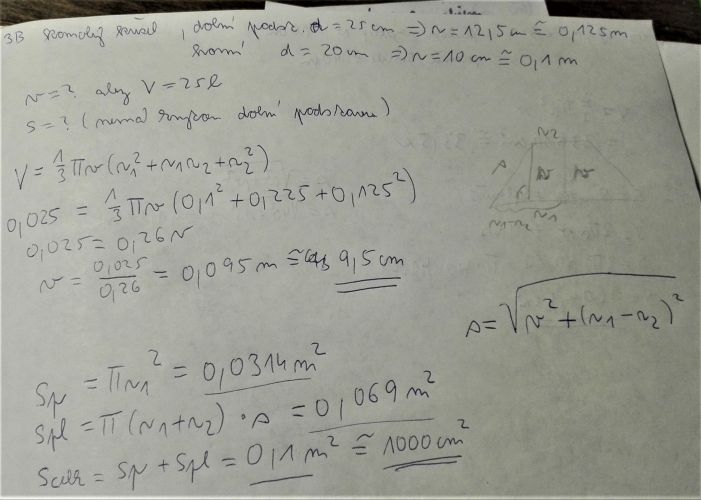 3B komolý kužel, dolní podst. d = 25cm ⇒ r = 12,5cm ≅ 0,125m
horní d = 20cm ⇒ r = 10cm ≅ 0,1m
v = ? aby V = 25l
S = ? (nemá dolní podstavu)
V = 1/3 πv (r1² + r1r2 + r2²)
0,025 = 1/3 πv (0,1² + 0,225 + 0,125²)
0,025 = 0,26v
v = 0,025/0,26 = 0,095m ≅ 9,5cm
r2
s
v
r1-r2
r1
s = √v² + (r1-r2)²
Sp = πr1² = 0,0314m²
Spl = π(r1+r2) · s = 0,069m²
Scelk = Sp + Spl = 0,1m² ≅ 1000cm²